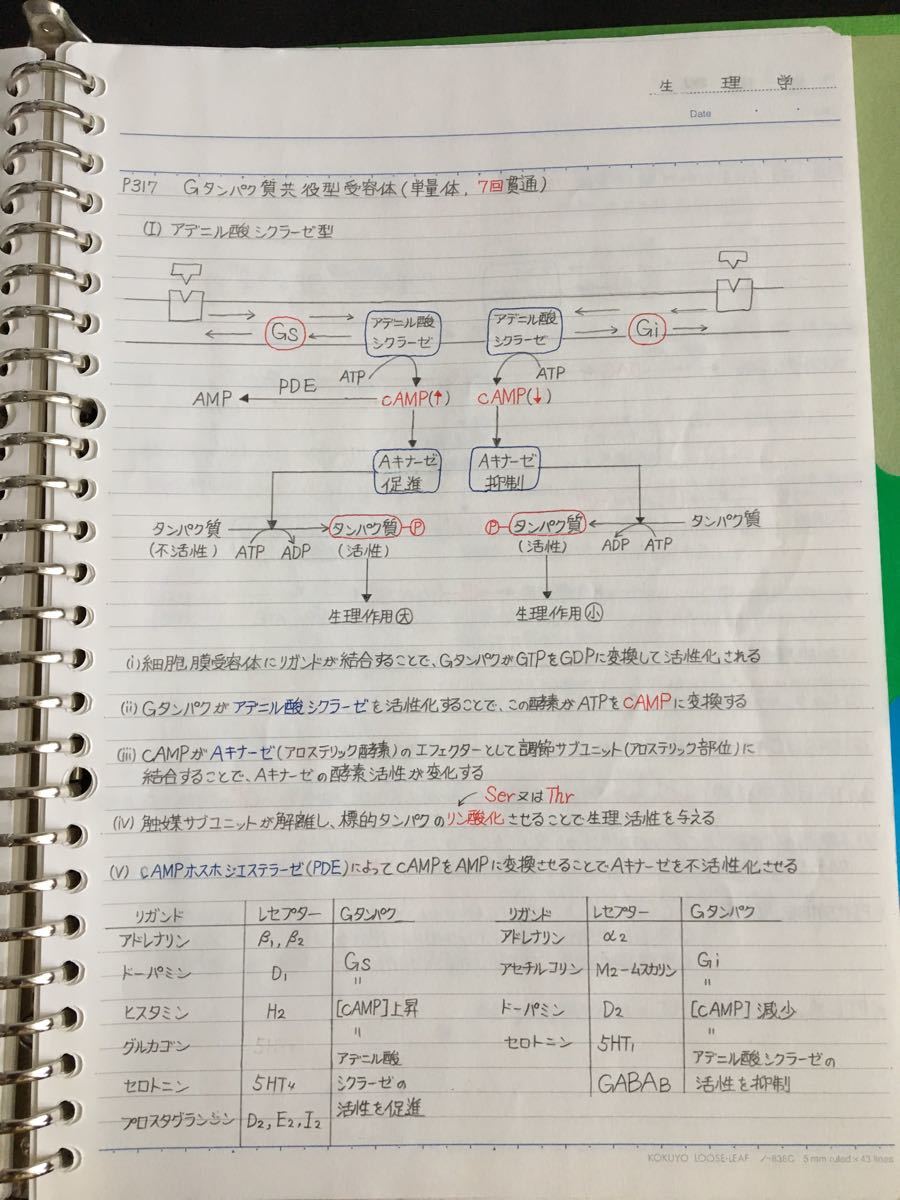 生理学
Date
P317 Gタンパク質共役型受容体(単量体,7回貫通)
(I) アデニル酸シクラーゼ型
Gs
アデニル酸
シクラーゼ
アデニル酸
シクラーゼ
Gi
ATP
ATP
AMP
PDE
cAMP(↑)
cAMP(↓)
Aキナーゼ
促進
Aキナーゼ
抑制
タンパク質
(不活性)
ATP
ADP
タンパク質
P
(活性)
P
タンパク質
(活性)
ADP
ATP
タンパク質
生理作用大
生理作用小
(i)細胞膜受容体にリガンドが結合することで、GタンパクがGTPをGDPに変換して活性化される
(ii) Gタンパクがアデニル酸シクラーゼを活性化することで、この酵素がATPをcAMPに変換する
(iii) cAMPがAキナーゼ(アロステリック酵素)のエフェクターとして調節サブユニット(アロステリック部位)に
結合することで、Aキナーゼの酵素活性が変化する
Ser又はThr
(iv)触媒サブユニットが解離し、標的タンパクのリン酸化させることで生理活性を与える
(v) cAMPホスホジエステラーゼ(PDE)によってcAMPをAMPに変換させることでAキナーゼを不活性化させる
リガンド レセプター Gタンパク
アドレナリン β1,β2
ドーパミン D1 Gs
〃
ヒスタミン H2 [cAMP]上昇
〃
グルカゴン アデニル酸
セロトニン 5HT4 シクラーゼの
プロスタグランジン D2,E2,I2 活性を促進
リガンド レセプター Gタンパク
アドレナリン α2
アセチルコリン M2-ムスカリン Gi
〃
ドーパミン D2 [cAMP]減少
〃
セロトニン 5HT1 アデニル酸シクラーゼの
GABAB 活性を抑制
KOKUYO LOOSE-LEAF ノ-836C 5 mm ruled×43 lines